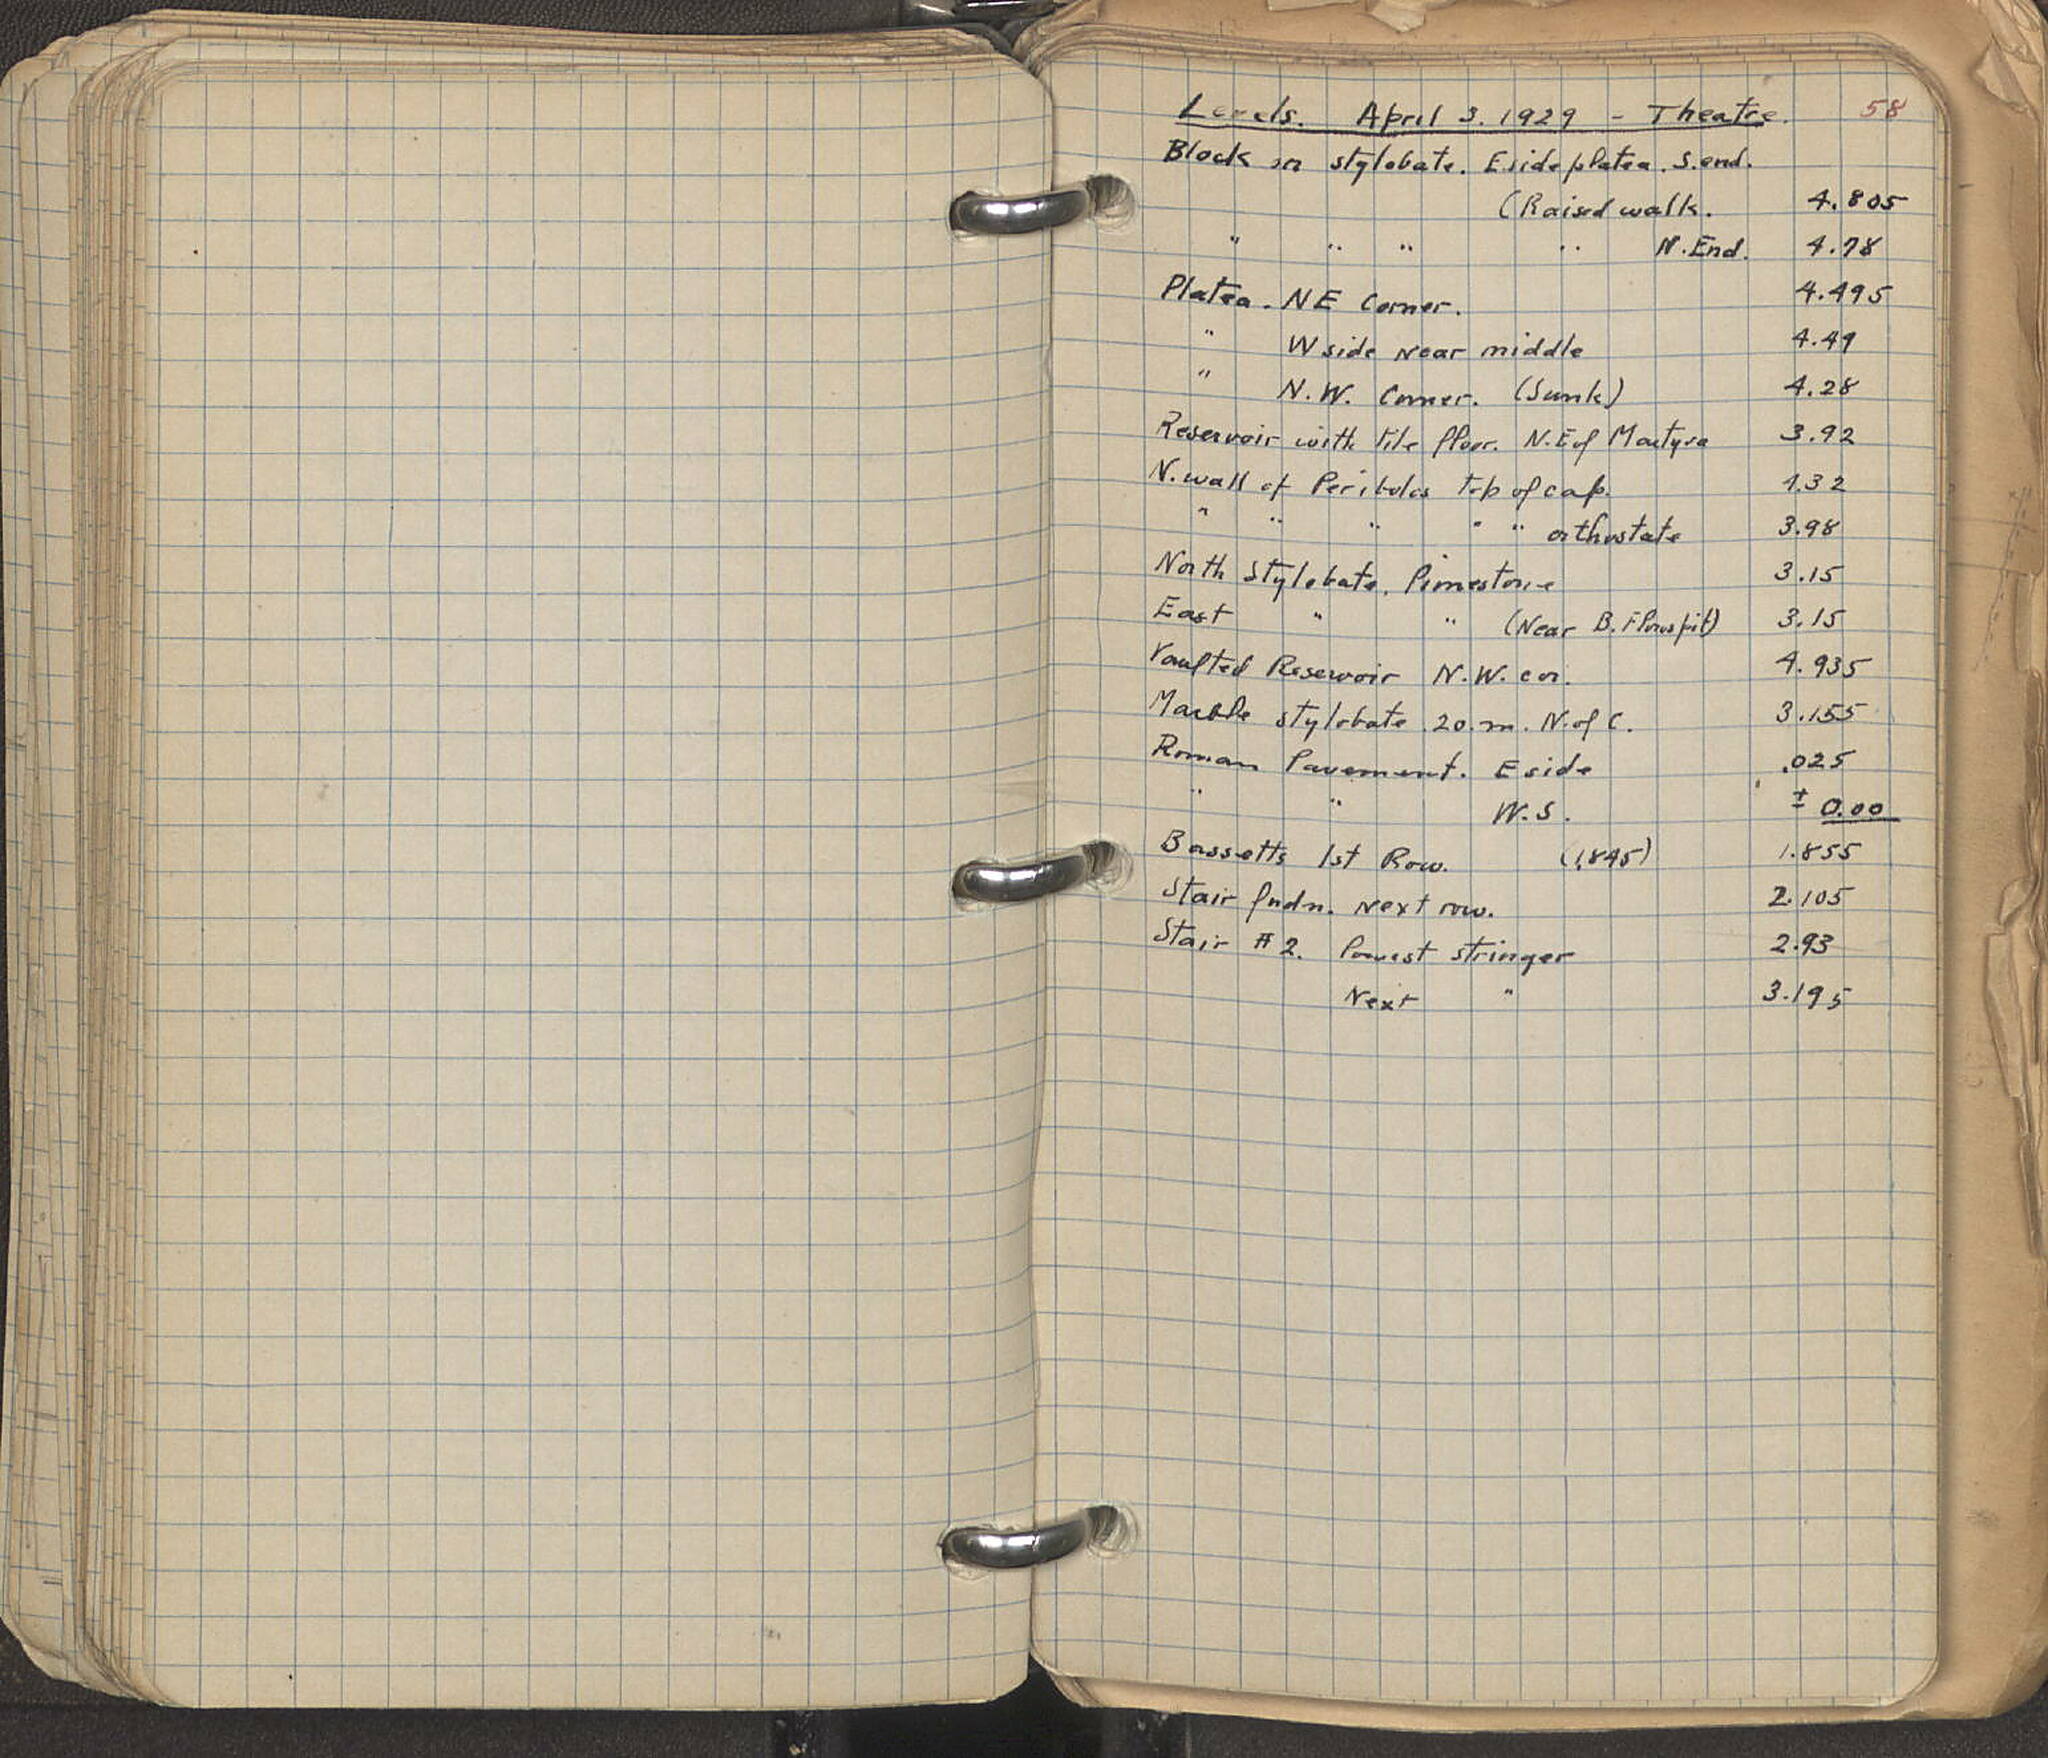 Levels. April 3. 1929 - Theatre. 58
Block on stylobate. E side platea. S. end.
(Raised walk. 4.805
" " " " N. End. 4.78
Platea. NE Corner. 4.495
" W side near middle 4.49
" N.W. Corner. (Sunk) 4.28
Reservoir with tile floor. N.E of Martyra 3.92
N. wall of Peribolos top of cap. 4.32
" " " " " orthostate 3.98
North Stylobate. limestone 3.15
East " " (Near B. Flowspit) 3.15
Vaulted Reservoir N.W. cor. 4.935
Marble stylobate 20. m. N. of C. 3.155
Roman Pavement. E side .025
" " W.S. ± 0.00
Bassetts 1st Row. (1.845) 1.855
Stair fndn. Next row. 2.105
Stair # 2. lowest stringer 2.93
Next " 3.195